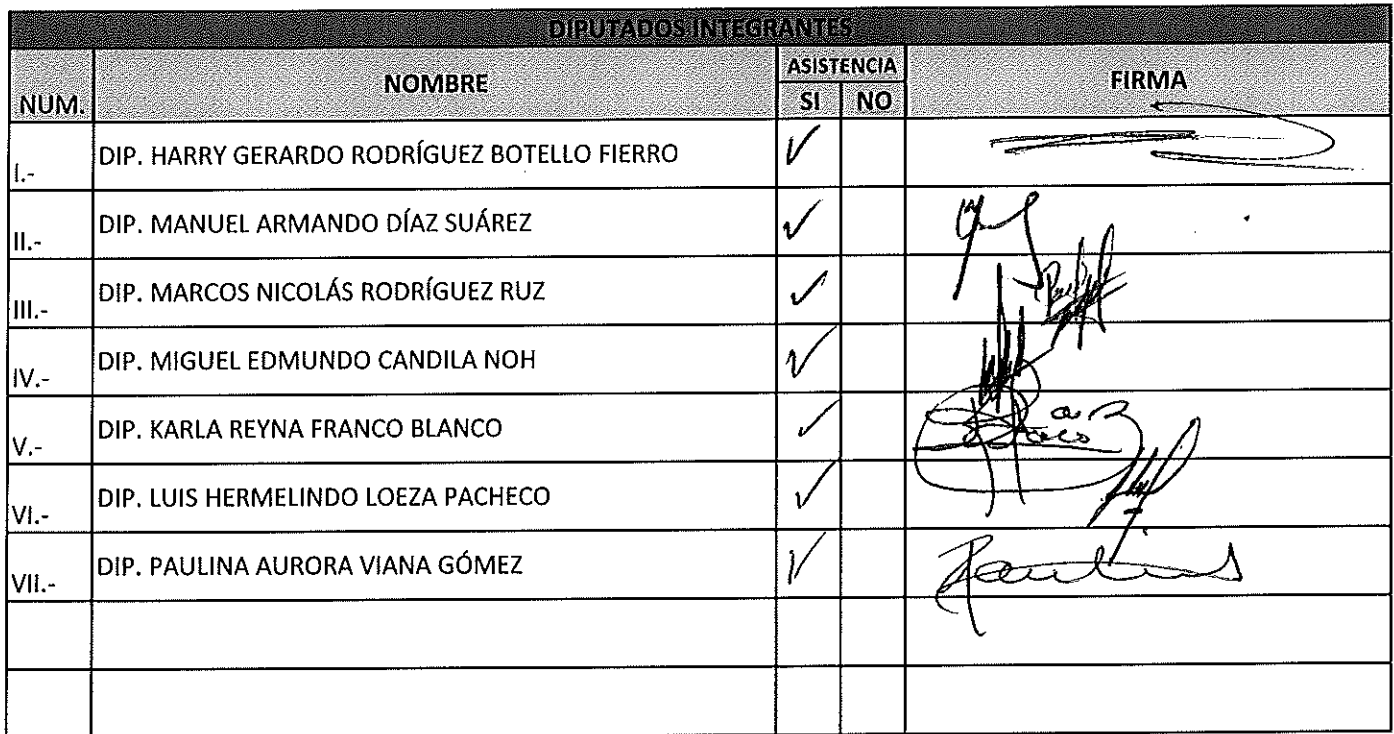 DIPUTADOS INTEGRANTES
NUM. NOMBRE ASISTENCIA FIRMA
SI NO
I.- DIP. HARRY GERARDO RODRÍGUEZ BOTELLO FIERRO ✓
II.- DIP. MANUEL ARMANDO DÍAZ SUÁREZ ✓
III.- DIP. MARCOS NICOLÁS RODRÍGUEZ RUZ ✓
IV.- DIP. MIGUEL EDMUNDO CANDILA NOH ✓
V.- DIP. KARLA REYNA FRANCO BLANCO ✓
VI.- DIP. LUIS HERMELINDO LOEZA PACHECO ✓
VII.- DIP. PAULINA AURORA VIANA GÓMEZ ✓